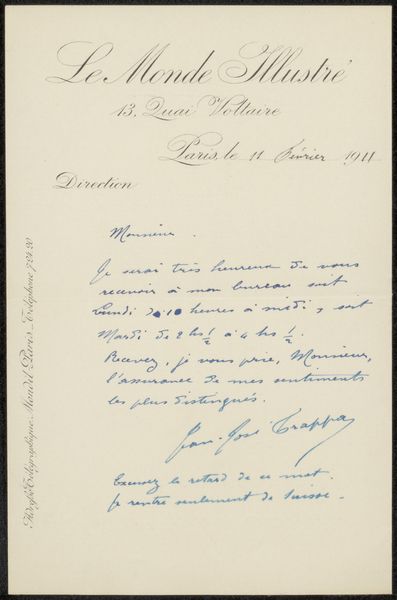 Le Monde Illustré
13, Quai Voltaire
Paris, le 11 Février 1911
Direction
Monsieur.
Je serai très heureux de vous
recevoir à mon bureau soit
Lundi de 10 heures à midi, soit
Mardi de 2 hs ½ à 4 hs ½.
Recevez, je vous prie, Monsieur,
l'assurance de mes sentiments
les plus distingués.
Jean-José Frappa
Excusez le retard de ce mot.
Je rentre seulement de Suisse.
Adresse Télégraphique Maudel Paris _ Téléphone 724.20